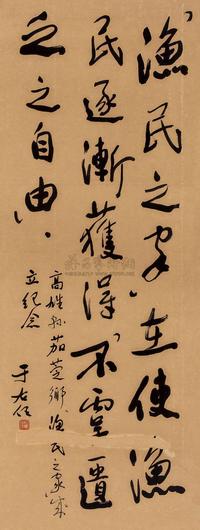 漁民之家在使漁
民逐漸獲得不虞匱
乏之自由
高雄縣茄萣鄉漁民之家成
立紀念
于右任